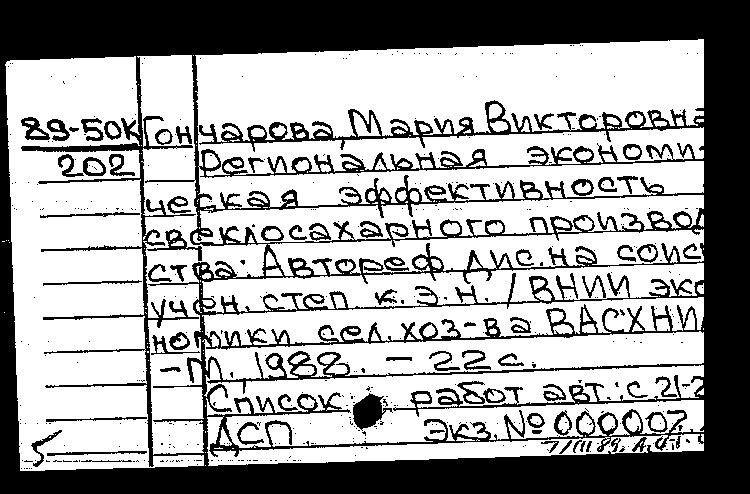 89-50К Гончарова, Мария Викторовна
202 Региональная экономи-
ческая эффективность
свеклосахарного производ
ства: Автореф. дис. на соиск
учен. степ к.э.н. / ВНИИ эко
номики сел. хоз-ва ВАСХНИЛ
-М., 1988. - 22 с.
Список работ авт.: с. 21-2
ДСП Экз. № 000007.
5